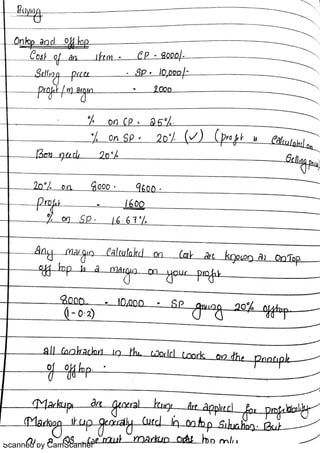 Buying
Ontop and off top
Cost of an item - CP - 8000/-
Selling price - SP - 10,000/-
profit / margin - 2000
% on CP - 25%
% on SP - 20% (✓) (profit is calculated on Selling price)
Boss needs 20%
20% on 8000 - 9600
Profit - 1600
% on SP - 16.67%
Any margin calculated on Cost are known as onTop
off top is a margin on your profit
8000 - 10,000 - SP giving 20% offtop
(1-0.2)
all Contractors in the world work on the principle
of offtop.
Markups are general things are applied for profitability
Marking it up generally used in ontop situation. But
as a QS markup only
Scanned by CamScanner